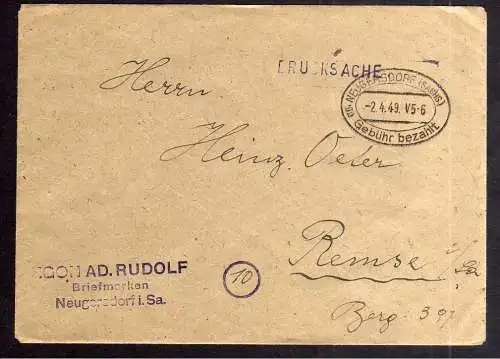 DRUCKSACHE
(10) NEUGERSDORF (SACHS)
-2.4.49. V5-6
Gebühr bezahlt
Herrn
Heinz Oeser
Remse i/Sa
Berg 39
EGON AD. RUDOLF
Briefmarken
Neugersdorf i. Sa.
10